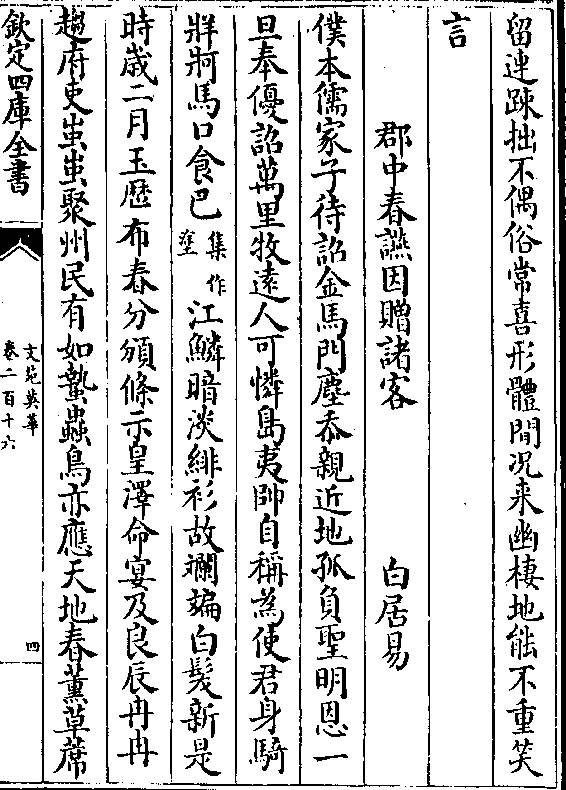 留連踈拙不偶俗常喜形體間况来幽棲地能不重笑
言
郡中春讌因贈諸客　白居易
僕本儒家子待詔金馬門塵忝親近地孤負聖明恩一
旦奉優詔萬里牧逺人可憐島夷帥自稱為使君身騎
牂牁馬口食巴集作塗江鱗暗淡緋衫故斕斒白髮新是
時歳二月玉歴布春分頒條示皇澤命宴及良辰冉冉
趨府吏蚩蚩聚州民有如蟄蟲鳥亦應天地春薫草蓆
欽定四庫全書
文苑英華
卷二百十六
四